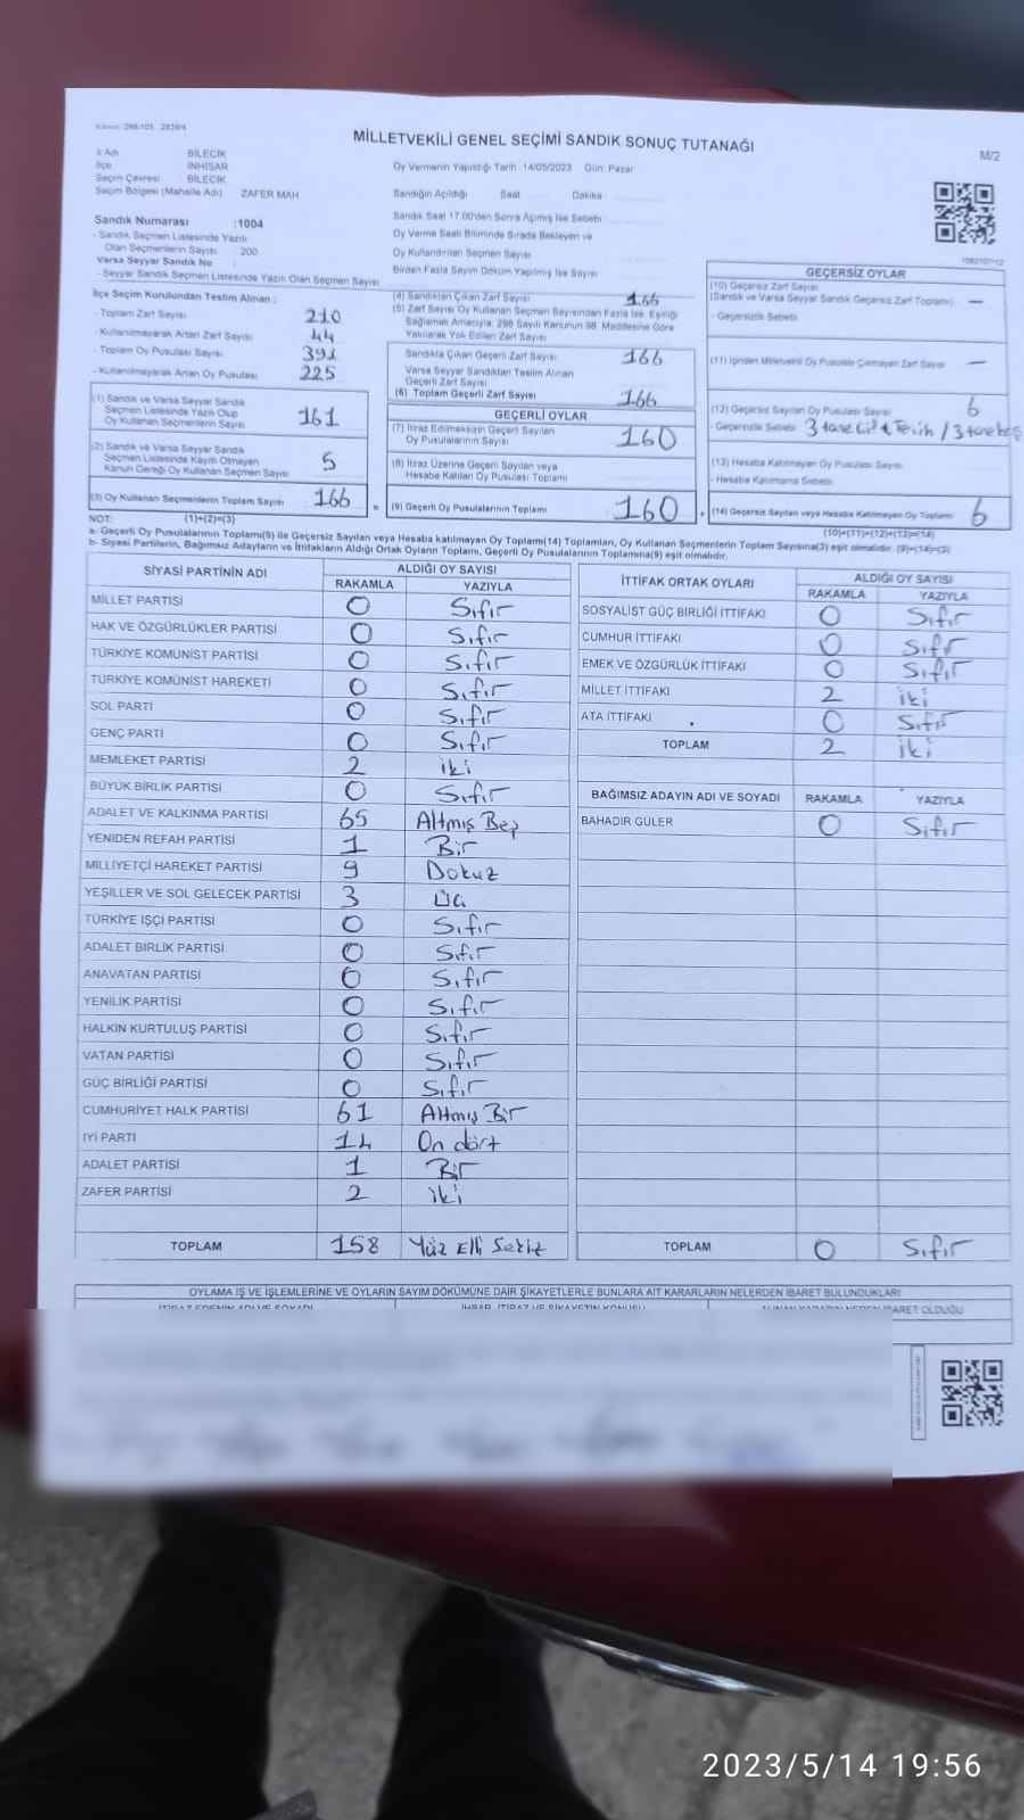 MİLLETVEKİLİ GENEL SEÇİMİ SANDIK SONUÇ TUTANAĞI
M/2
İl Adı BİLECİK
İlçe İNHİSAR
Seçim Çevresi BİLECİK
Seçim Bölgesi (Mahalle Adı) ZAFER MAH
Oy Vermenin Yapıldığı Tarih :14/05/2023 Gün: Pazar
Sandığın Açıldığı Saat Dakika
Sandık Numarası :1004
- Sandık Seçmen Listesinde Yazılı
Olan Seçmenlerin Sayısı 200
Varsa Seyyar Sandık No
- Seyyar Sandık Seçmen Listesinde Yazılı Olan Seçmen Sayısı
Sandık Saat 17.00'den Sonra Açılmış İse Sebebi
Oy Verme Saati Bitiminde Sırada Bekleyen ve
Oy Kullandırılan Seçmen Sayısı
Birden Fazla Sayım Döküm Yapılmış İse Sayısı
İlçe Seçim Kurulundan Teslim Alınan :
- Toplam Zarf Sayısı 210
- Kullanılmayarak Artan Zarf Sayısı 44
- Toplam Oy Pusulası Sayısı 391
- Kullanılmayarak Artan Oy Pusulası 225
(1) Sandık ve Varsa Seyyar Sandık
Seçmen Listesinde Yazılı Olup
Oy Kullanan Seçmenlerin Sayısı 161
(2) Sandık ve Varsa Seyyar Sandık
Seçmen Listesinde Kaydı Olmayan
Kanun Gereği Oy Kullanan Seçmen Sayısı 5
(3) Oy Kullanan Seçmenlerin Toplam Sayısı 166
(1)+(2)=(3)
(4) Sandıktan Çıkan Zarf Sayısı 166
(5) Zarf Sayısı Oy Kullanan Seçmen Sayısından Fazla İse, Eşitliği
Sağlamak Amacıyla; 298 Sayılı Kanunun 98. Maddesine Göre
Yakılarak Yok Edilen Zarf Sayısı
Sandıkta Çıkan Geçerli Zarf Sayısı 166
Varsa Seyyar Sandıktan Teslim Alınan
Geçerli Zarf Sayısı
(6) Toplam Geçerli Zarf Sayısı 166
GEÇERLİ OYLAR
(7) İtiraz Edilmeksizin Geçerli Sayılan
Oy Pusulalarının Sayısı 160
(8) İtiraz Üzerine Geçerli Sayılan veya
Hesaba Katılan Oy Pusulası Toplamı
(9) Geçerli Oy Pusulalarının Toplamı 160
GEÇERSİZ OYLAR
(10) Geçersiz Zarf Sayısı
(Sandık ve Varsa Seyyar Sandık Geçersiz Zarf Toplamı) —
- Geçersizlik Sebebi
(11) İçinden Milletvekili Oy Pusulası Çıkmayan Zarf Sayısı —
(12) Geçersiz Sayılan Oy Pusulası Sayısı 6
- Geçersizlik Sebebi 3 tane / 3 tane
(13) Hesaba Katılmayan Oy Pusulası Sayısı
- Hesaba Katılmama Sebebi
(14) Geçersiz Sayılan veya Hesaba Katılmayan Oy Toplamı 6
(10)+(11)+(12)+(13)=(14)
NOT:
a- Geçerli Oy Pusulalarının Toplamı(9) ile Geçersiz Sayılan veya Hesaba katılmayan Oy Toplamı(14) Toplamları, Oy Kullanan Seçmenlerin Toplam Sayısına(3) eşit olmalıdır. (9)+(14)=(3)
b- Siyasi Partilerin, Bağımsız Adayların ve İttifakların Aldığı Ortak Oyların Toplamı, Geçerli Oy Pusulalarının Toplamına(9) eşit olmalıdır.
SİYASİ PARTİNİN ADI ALDIĞI OY SAYISI
RAKAMLA YAZIYLA
MİLLET PARTİSİ 0 Sıfır
HAK VE ÖZGÜRLÜKLER PARTİSİ 0 Sıfır
TÜRKİYE KOMÜNİST PARTİSİ 0 Sıfır
TÜRKİYE KOMÜNİST HAREKETİ 0 Sıfır
SOL PARTİ 0 Sıfır
GENÇ PARTİ 0 Sıfır
MEMLEKET PARTİSİ 2 iki
BÜYÜK BİRLİK PARTİSİ 0 Sıfır
ADALET VE KALKINMA PARTİSİ 65 Altmış Beş
YENİDEN REFAH PARTİSİ 1 Bir
MİLLİYETÇİ HAREKET PARTİSİ 9 Dokuz
YEŞİLLER VE SOL GELECEK PARTİSİ 3 Üç
TÜRKİYE İŞÇİ PARTİSİ 0 Sıfır
ADALET BİRLİK PARTİSİ 0 Sıfır
ANAVATAN PARTİSİ 0 Sıfır
YENİLİK PARTİSİ 0 Sıfır
HALKIN KURTULUŞ PARTİSİ 0 Sıfır
VATAN PARTİSİ 0 Sıfır
GÜÇ BİRLİĞİ PARTİSİ 0 Sıfır
CUMHURİYET HALK PARTİSİ 61 Altmış Bir
İYİ PARTİ 14 On dört
ADALET PARTİSİ 1 Bir
ZAFER PARTİSİ 2 iki
TOPLAM 158 Yüz Elli Sekiz
İTTİFAK ORTAK OYLARI ALDIĞI OY SAYISI
RAKAMLA YAZIYLA
SOSYALİST GÜÇ BİRLİĞİ İTTİFAKI 0 Sıfır
CUMHUR İTTİFAKI 0 Sıfır
EMEK VE ÖZGÜRLÜK İTTİFAKI 0 Sıfır
MİLLET İTTİFAKI 2 iki
ATA İTTİFAKI 0 Sıfır
TOPLAM 2 iki
BAĞIMSIZ ADAYIN ADI VE SOYADI RAKAMLA YAZIYLA
BAHADIR GÜLER 0 Sıfır
TOPLAM 0 Sıfır
OYLAMA İŞ VE İŞLEMLERİNE VE OYLARIN SAYIM DÖKÜMÜNE DAİR ŞİKAYETLERLE BUNLARA AİT KARARLARIN NELERDEN İBARET BULUNDUKLARI
2023/5/14 19:56